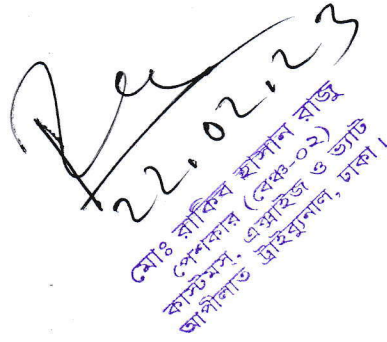 22.02.23
মোঃ রাকিব হাসান রাজু
পেশকার (বেঞ্চ-০২)
কাস্টমস, এক্সাইজ ও ভ্যাট
আপীলাত ট্রাইব্যুনাল, ঢাকা।